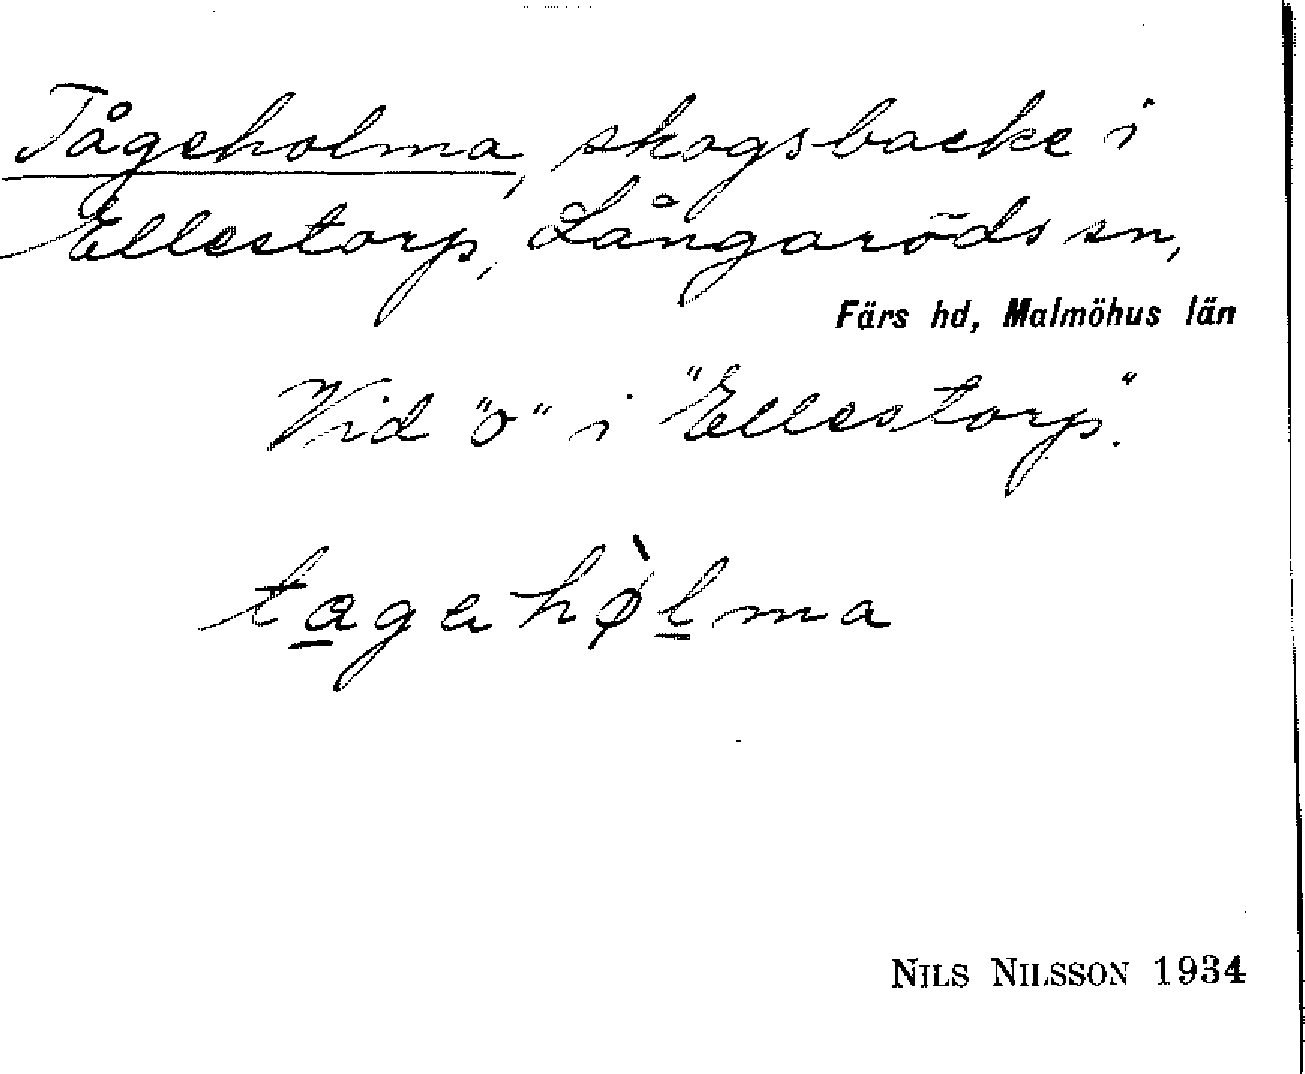 Tågeholma, skogsbacke i
Ellestorp, Långaröds sn,
Färs hd, Malmöhus län
Vid "o" i "Ellestorp".
tagahø̀lma
NILS NILSSON 1934